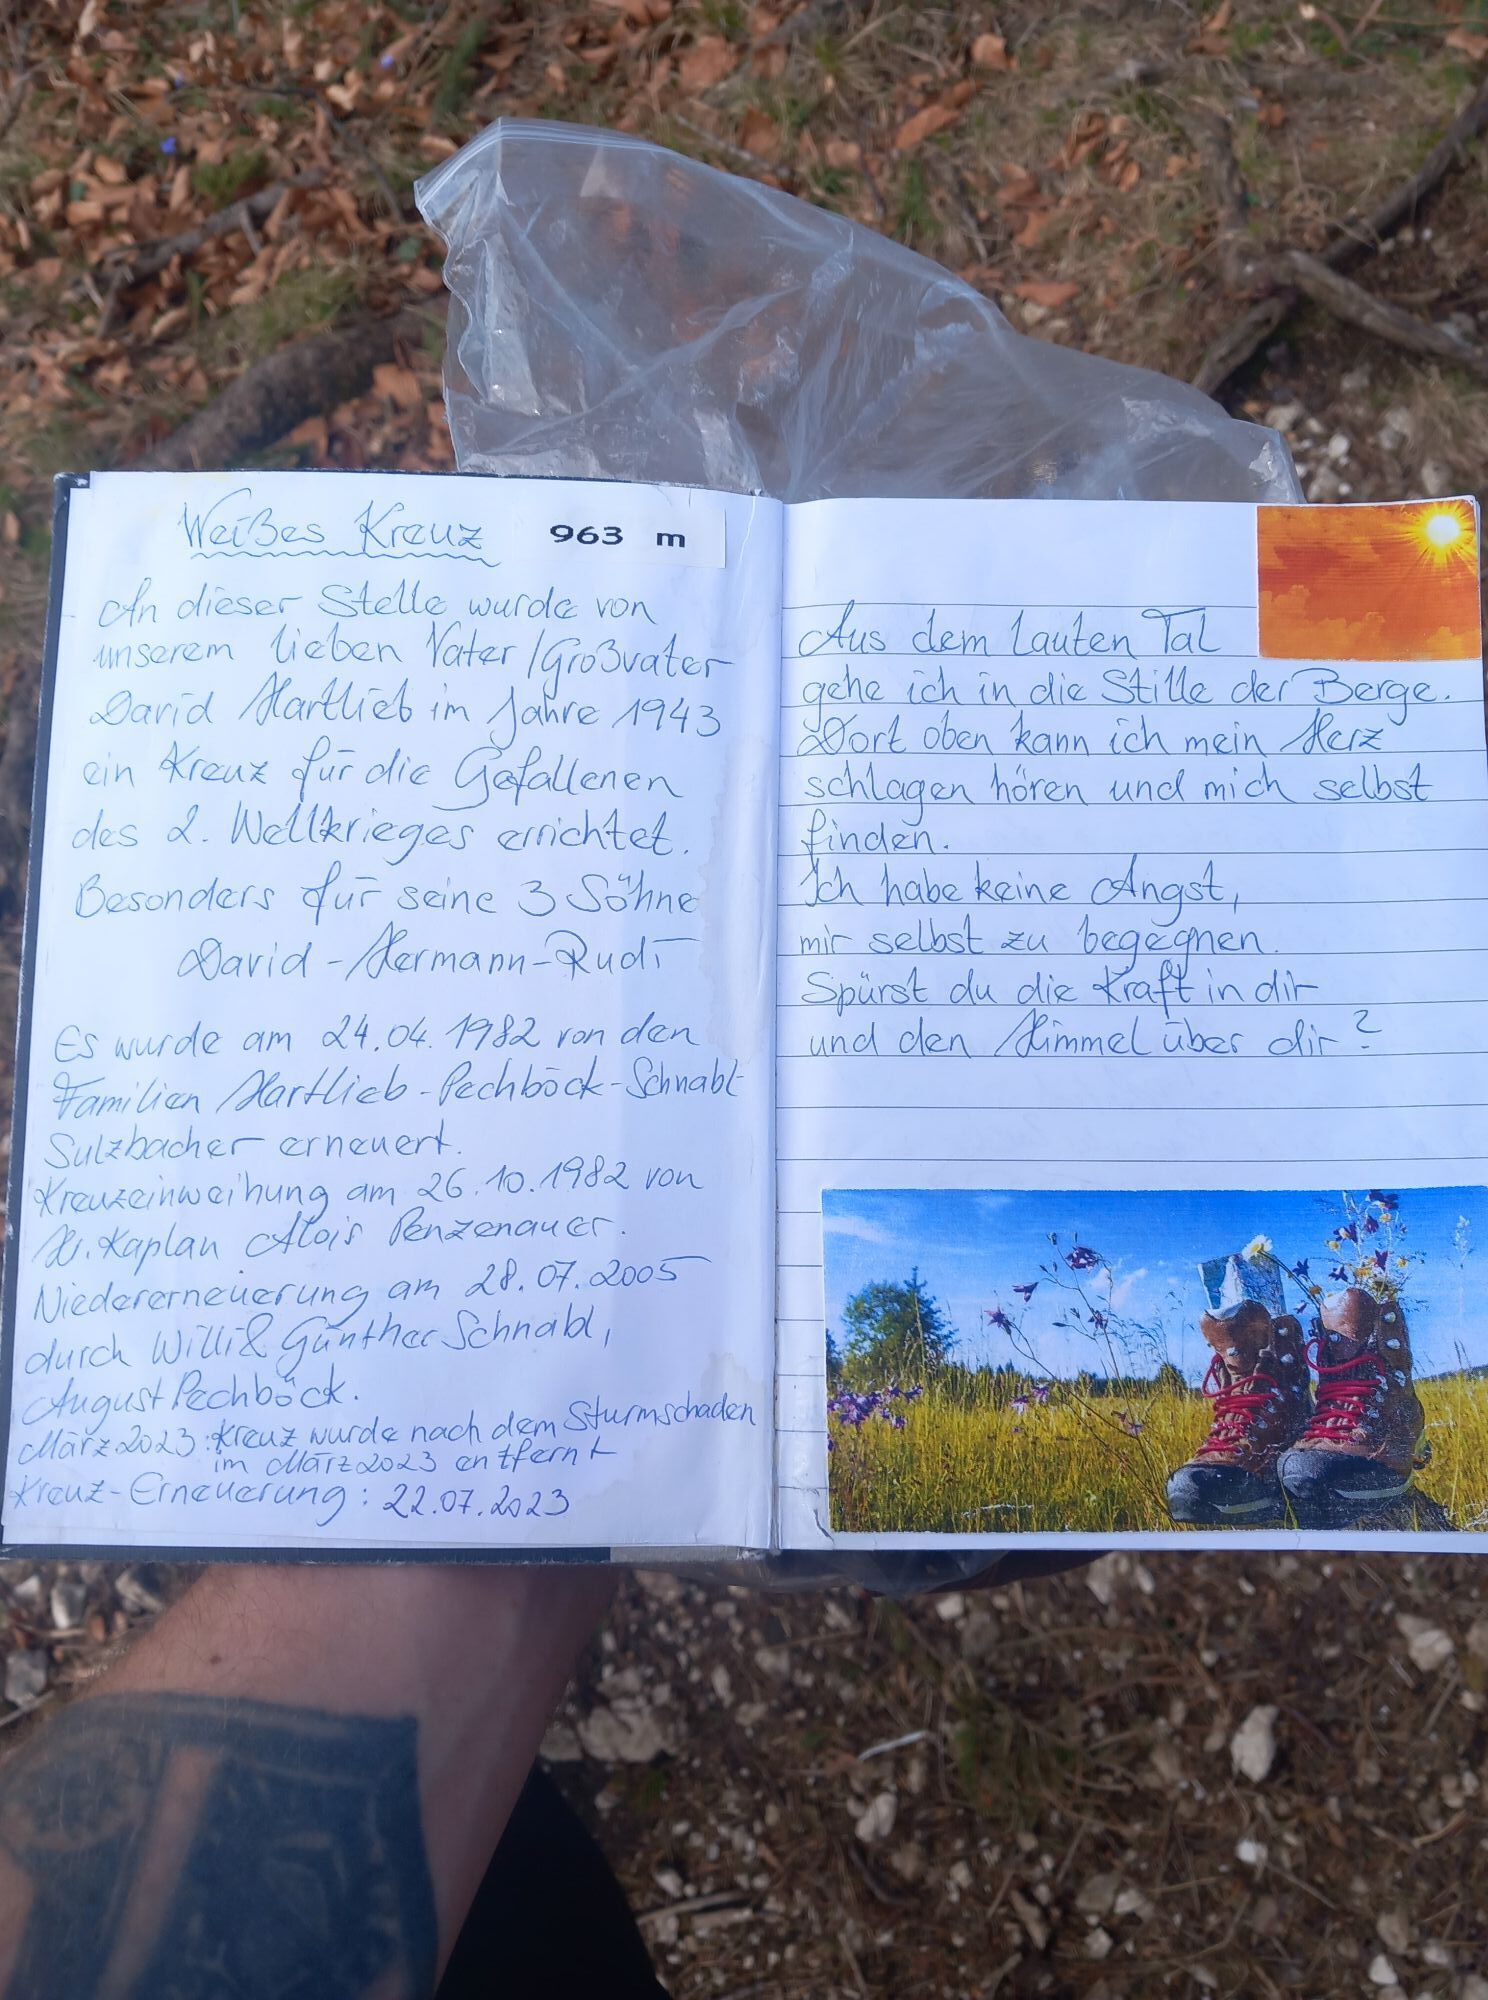 Weißes Kreuz 963 m
An dieser Stelle wurde von
unserem lieben Vater/Großvater
David Hartlieb im Jahre 1943
ein Kreuz für die Gefallenen
des 2. Weltkrieges errichtet.
Besonders für seine 3 Söhne
David-Hermann-Rudi
Es wurde am 24.04.1982 von den
Familien Hartlieb-Pechböck-Schnabl
Sulzbacher erneuert.
Kreuzeinweihung am 26.10.1982 von
Hr. Kaplan Alois Penzenauer.
Niedererneuerung am 28.07.2005
durch Willi & Günther Schnabl,
August Pechböck.
März 2023: Kreuz wurde nach dem Sturmschaden
im März 2023 entfernt
Kreuz-Erneuerung: 22.07.2023
Aus dem lauten Tal
gehe ich in die Stille der Berge.
Dort oben kann ich mein Herz
schlagen hören und mich selbst
finden.
Ich habe keine Angst,
mir selbst zu begegnen.
Spürst du die Kraft in dir
und den Himmel über dir?